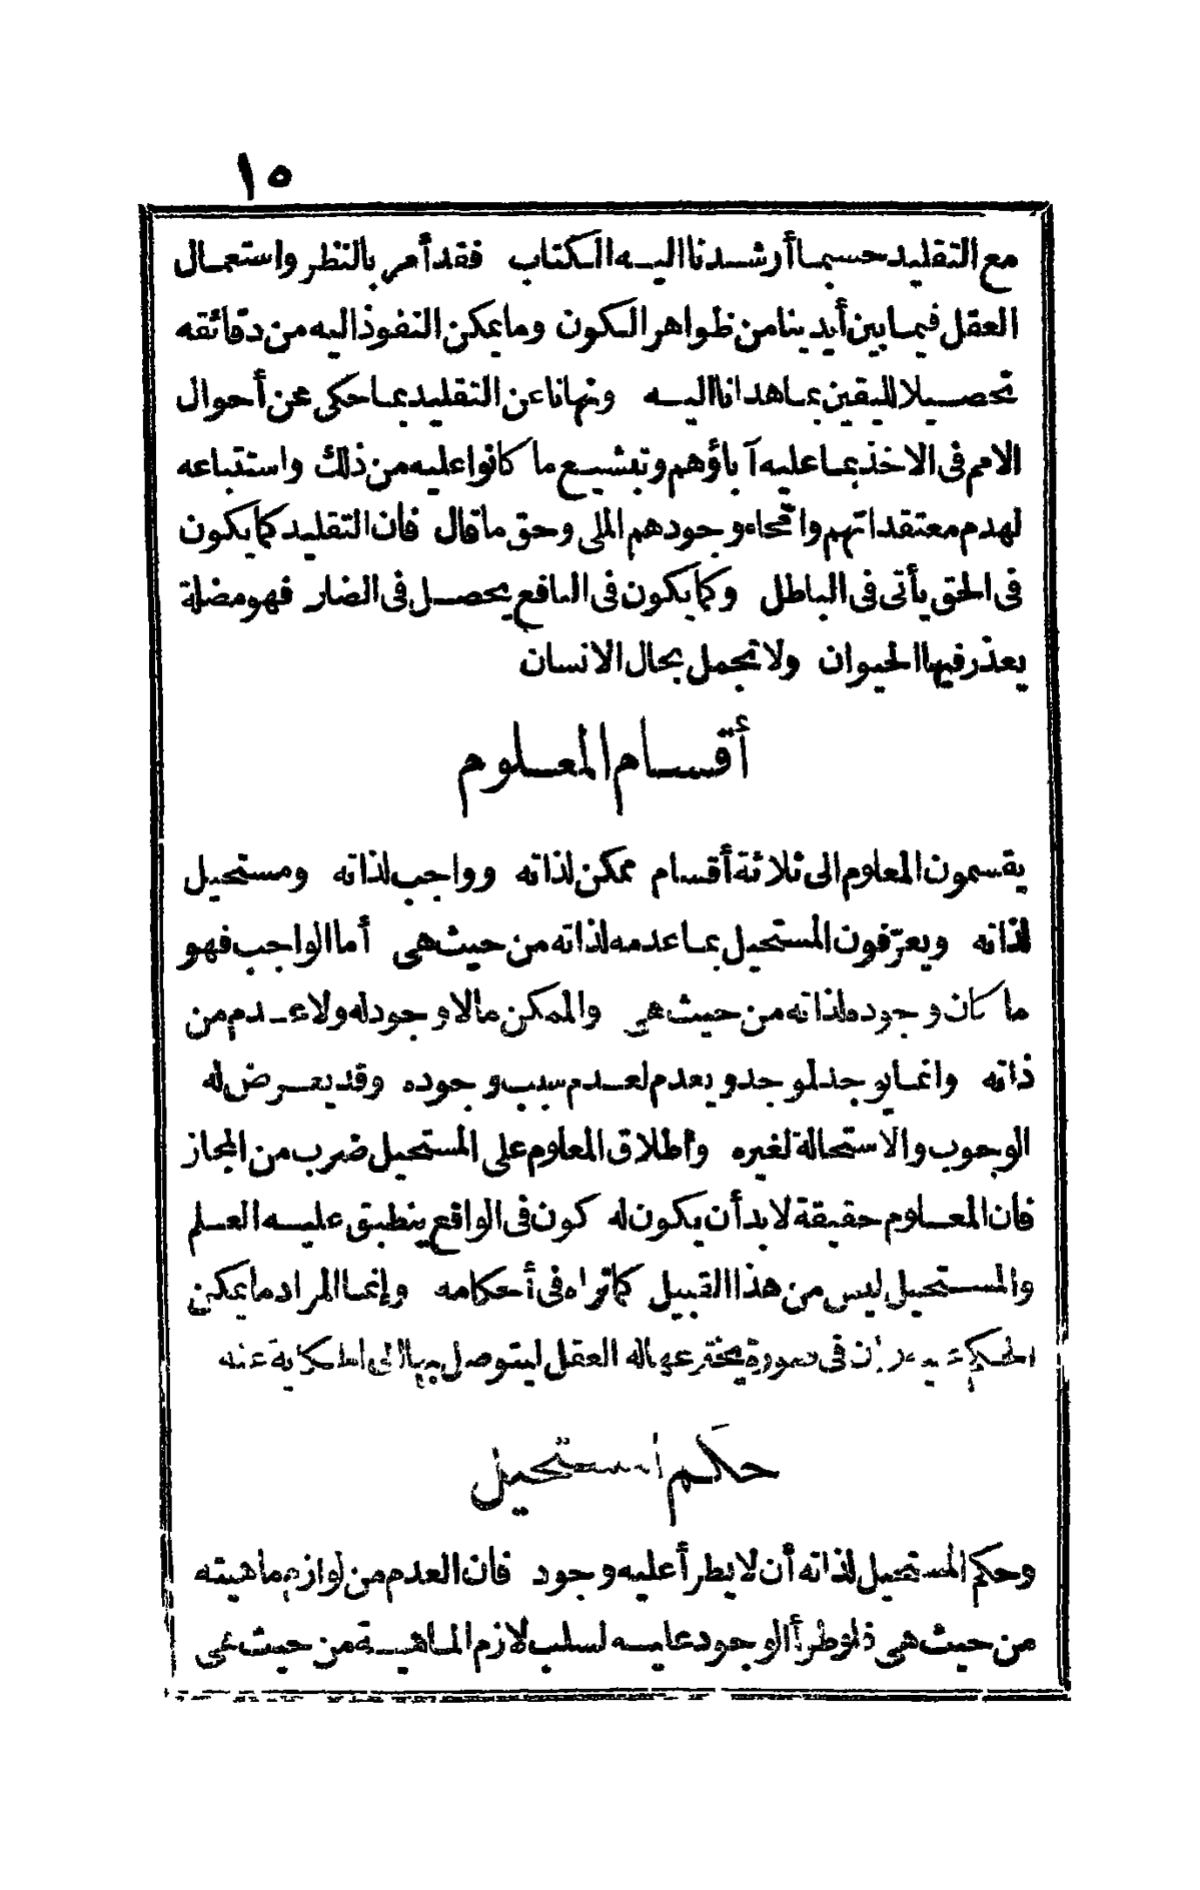 ١٥
مع التقليد حسبما أرشدنا اليه الكتاب فقد أمر بالنظر واستعمال
العقل فيما بين أيدينا من ظواهر الكون وما يمكن النفوذ اليه من دقائقه
تحصيلا لليقين بما هدانا اليه ونهانا عن التقليد بما حكى عن أحوال
الامم فى الاخذ بما عليه آباؤهم وتبشيع ما كانوا عليه من ذلك واستتباعه
لهدم معتقداتهم وامحاء وجودهم الملى وحق ما قال فان التقليد كما يكون
فى الحق يأتى فى الباطل وكما يكون فى النافع يحصل فى الضار فهو مضلة
يعذر فيها الحيوان ولا تجمل بحال الانسان
أقسام المعلوم
يقسمون المعلوم الى ثلاثة أقسام ممكن لذاته وواجب لذاته ومستحيل
لذاته ويعرّفون المستحيل بما عدمه لذاته من حيث هى أما الواجب فهو
ما كان وجوده لذاته من حيث هى والممكن ما لا وجود له ولا عدم من
ذاته وانما يوجد لموجد ويعدم لعدم سبب وجوده وقد يعرض له
الوجوب والاستحالة لغيره واطلاق المعلوم على المستحيل ضرب من المجاز
فان المعلوم حقيقة لا بد أن يكون له كون فى الواقع ينطبق عليه العلم
والمستحيل ليس من هذا القبيل كما تراه فى أحكامه وإنما المراد ما يمكن
الحكم عليه وان فى صورة يخترعها له العقل ليتوصل بها الى الحكاية عنه
حكم المستحيل
وحكم المستحيل لذاته أن لا يطرأ عليه وجود فان العدم من لوازم ماهيته
من حيث هى فلو طرأ الوجود عليه لسلب لازم الماهية من حيث هى